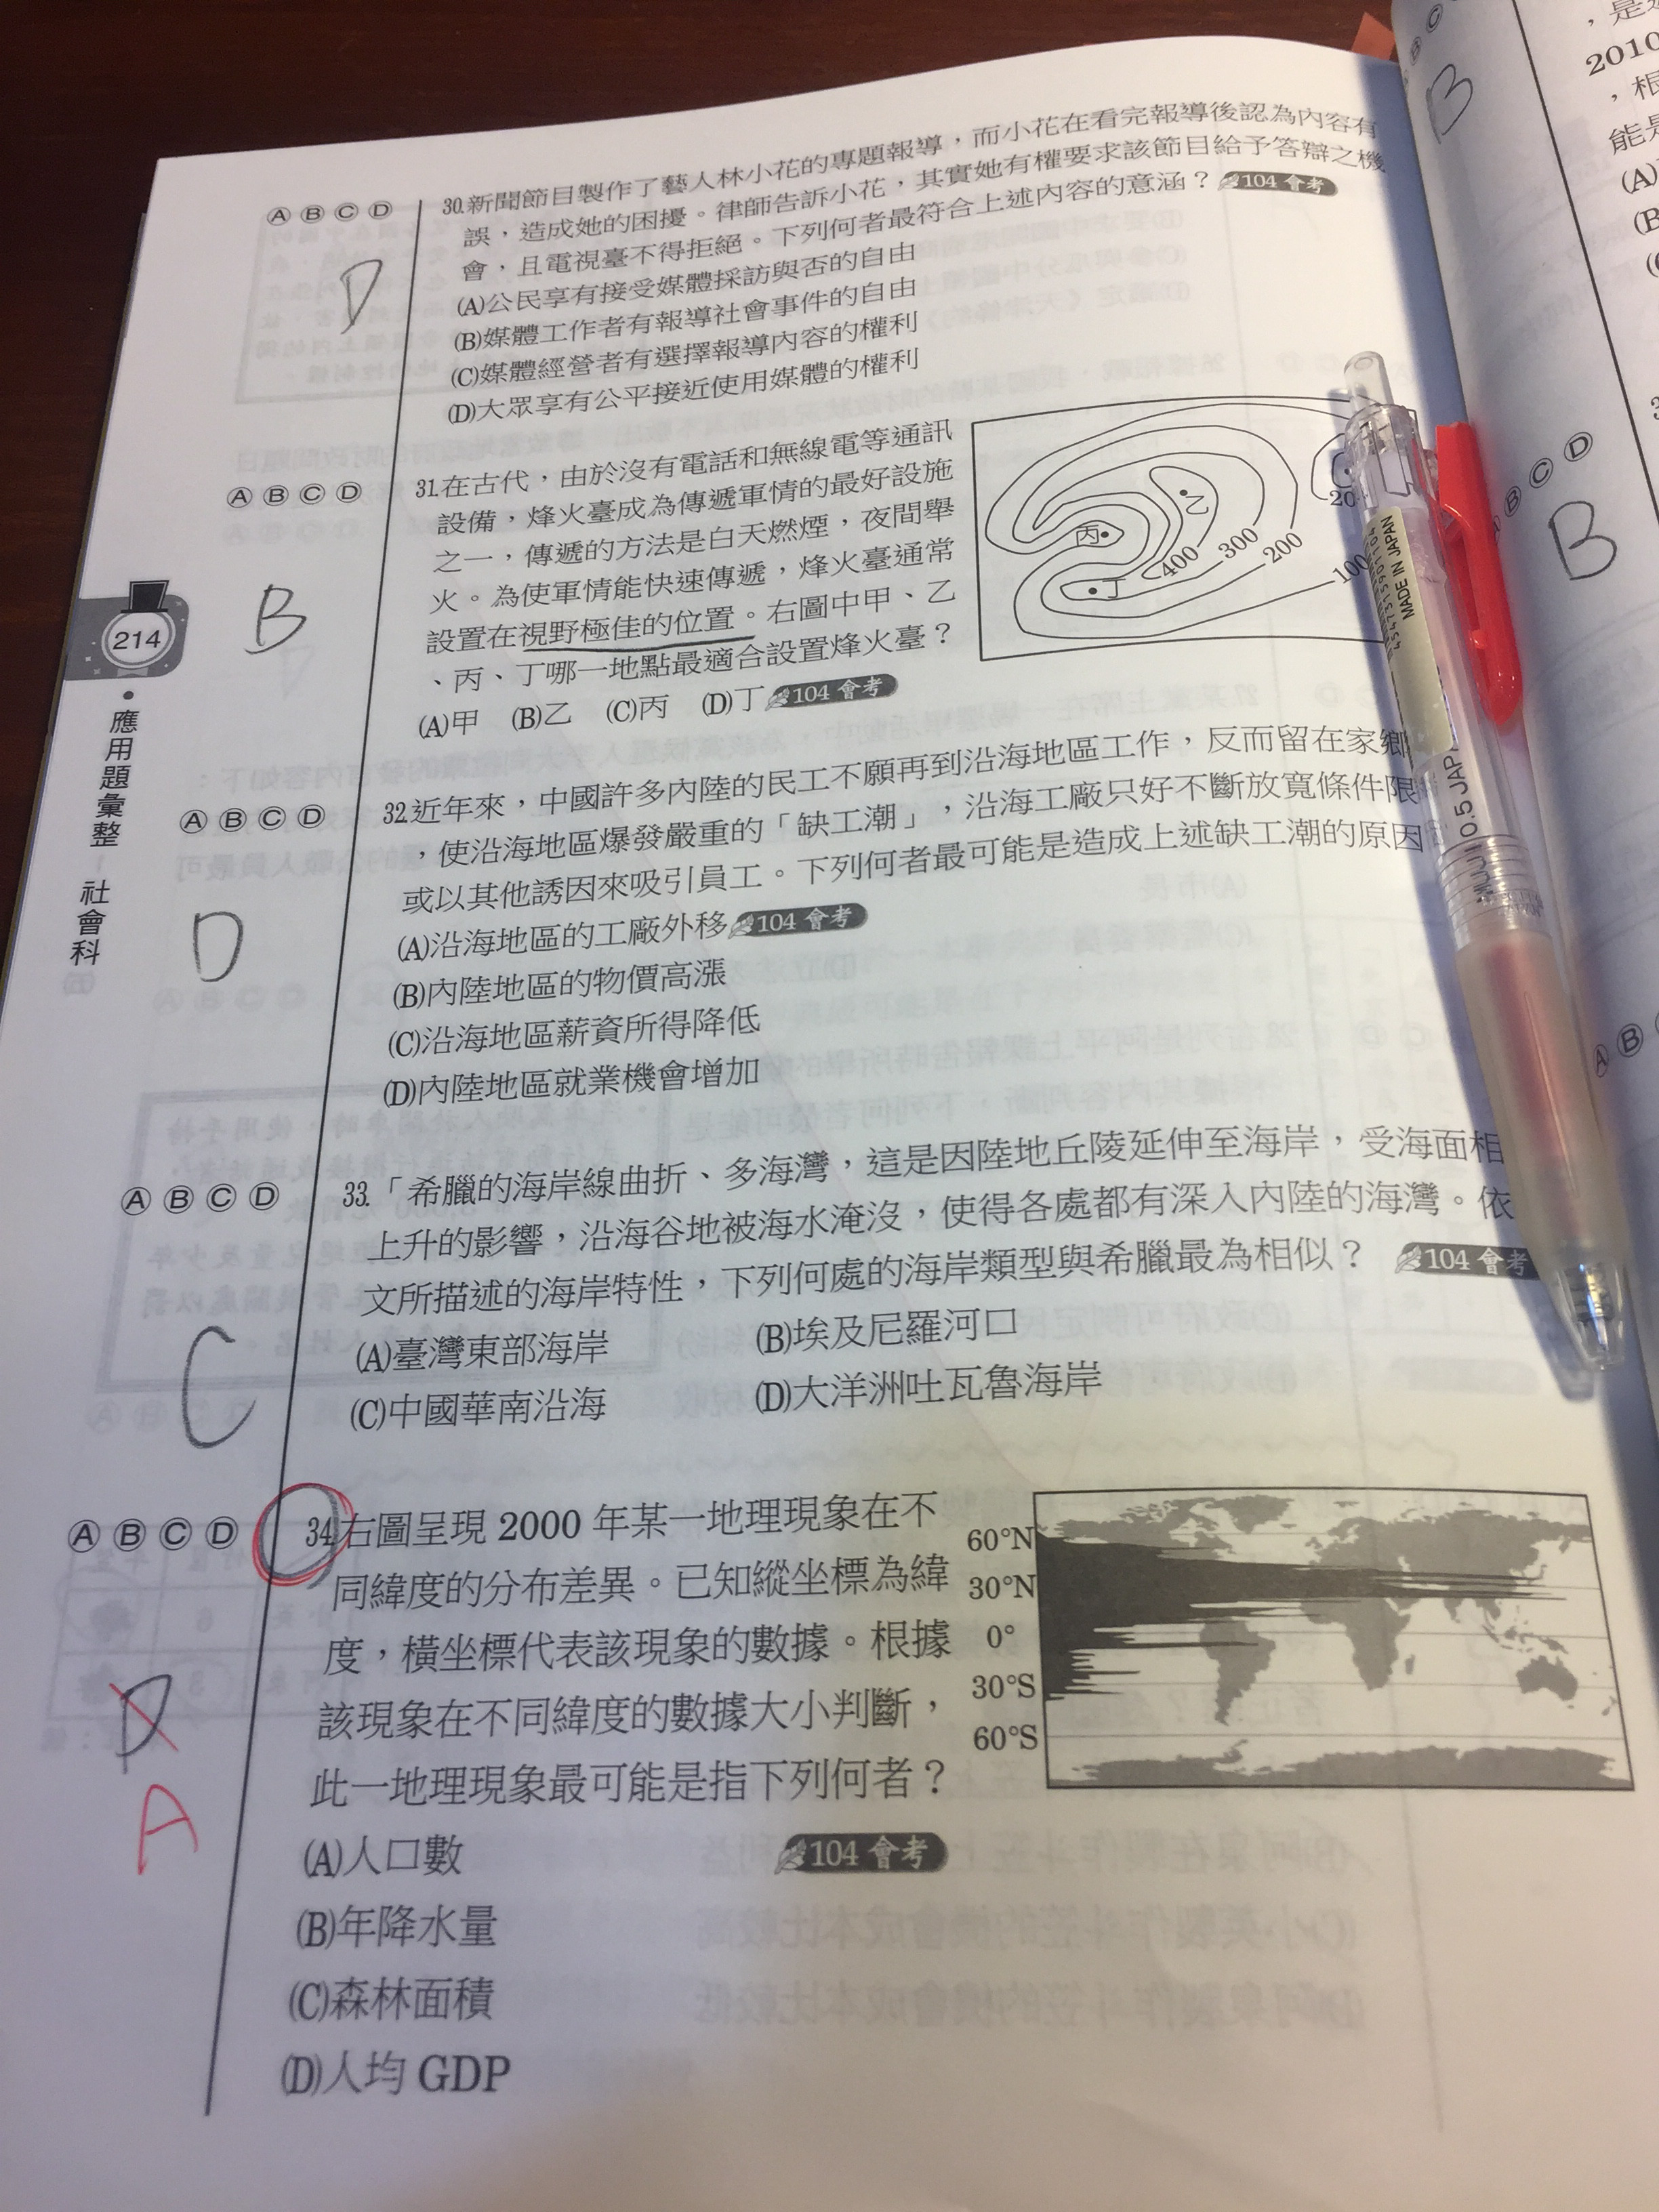 ⒶⒷⒸⒹ
30.新聞節目製作了藝人林小花的專題報導，而小花在看完報導後認為內容有
誤，造成她的困擾。律師告訴小花，其實她有權要求該節目給予答辯之機
會，且電視臺不得拒絕。下列何者最符合上述內容的意涵？104 會考
(A)公民享有接受媒體採訪與否的自由
(B)媒體工作者有報導社會事件的自由
(C)媒體經營者有選擇報導內容的權利
(D)大眾享有公平接近使用媒體的權利
D
ⒶⒷⒸⒹ
31.在古代，由於沒有電話和無線電等通訊
設備，烽火臺成為傳遞軍情的最好設施
之一，傳遞的方法是白天燃煙，夜間舉
火。為使軍情能快速傳遞，烽火臺通常
設置在視野極佳的位置。右圖中甲、乙
、丙、丁哪一地點最適合設置烽火臺？
(A)甲 (B)乙 (C)丙 (D)丁 104 會考
B
乙
丙
丁
400
300
200
100
20
214
應用題彙整
社會科
ⒶⒷⒸⒹ
32.近年來，中國許多內陸的民工不願再到沿海地區工作，反而留在家鄉
，使沿海地區爆發嚴重的「缺工潮」，沿海工廠只好不斷放寬條件限
或以其他誘因來吸引員工。下列何者最可能是造成上述缺工潮的原因
(A)沿海地區的工廠外移 104 會考
(B)內陸地區的物價高漲
(C)沿海地區薪資所得降低
(D)內陸地區就業機會增加
D
ⒶⒷⒸⒹ
33.「希臘的海岸線曲折、多海灣，這是因陸地丘陵延伸至海岸，受海面相
上升的影響，沿海谷地被海水淹沒，使得各處都有深入內陸的海灣。依
文所描述的海岸特性，下列何處的海岸類型與希臘最為相似？ 104 會考
(A)臺灣東部海岸 (B)埃及尼羅河口
(C)中國華南沿海 (D)大洋洲吐瓦魯海岸
C
ⒶⒷⒸⒹ
34.右圖呈現 2000 年某一地理現象在不
同緯度的分布差異。已知縱坐標為緯
度，橫坐標代表該現象的數據。根據
該現象在不同緯度的數據大小判斷，
此一地理現象最可能是指下列何者？
104 會考
(A)人口數
(B)年降水量
(C)森林面積
(D)人均 GDP
D
A
60°N
30°N
0°
30°S
60°S
MADE IN JAPAN
MUJI 0.5 JAP
B
2010
，根
(A)
ⒷⒸⒹ
B
ⒶⒷ